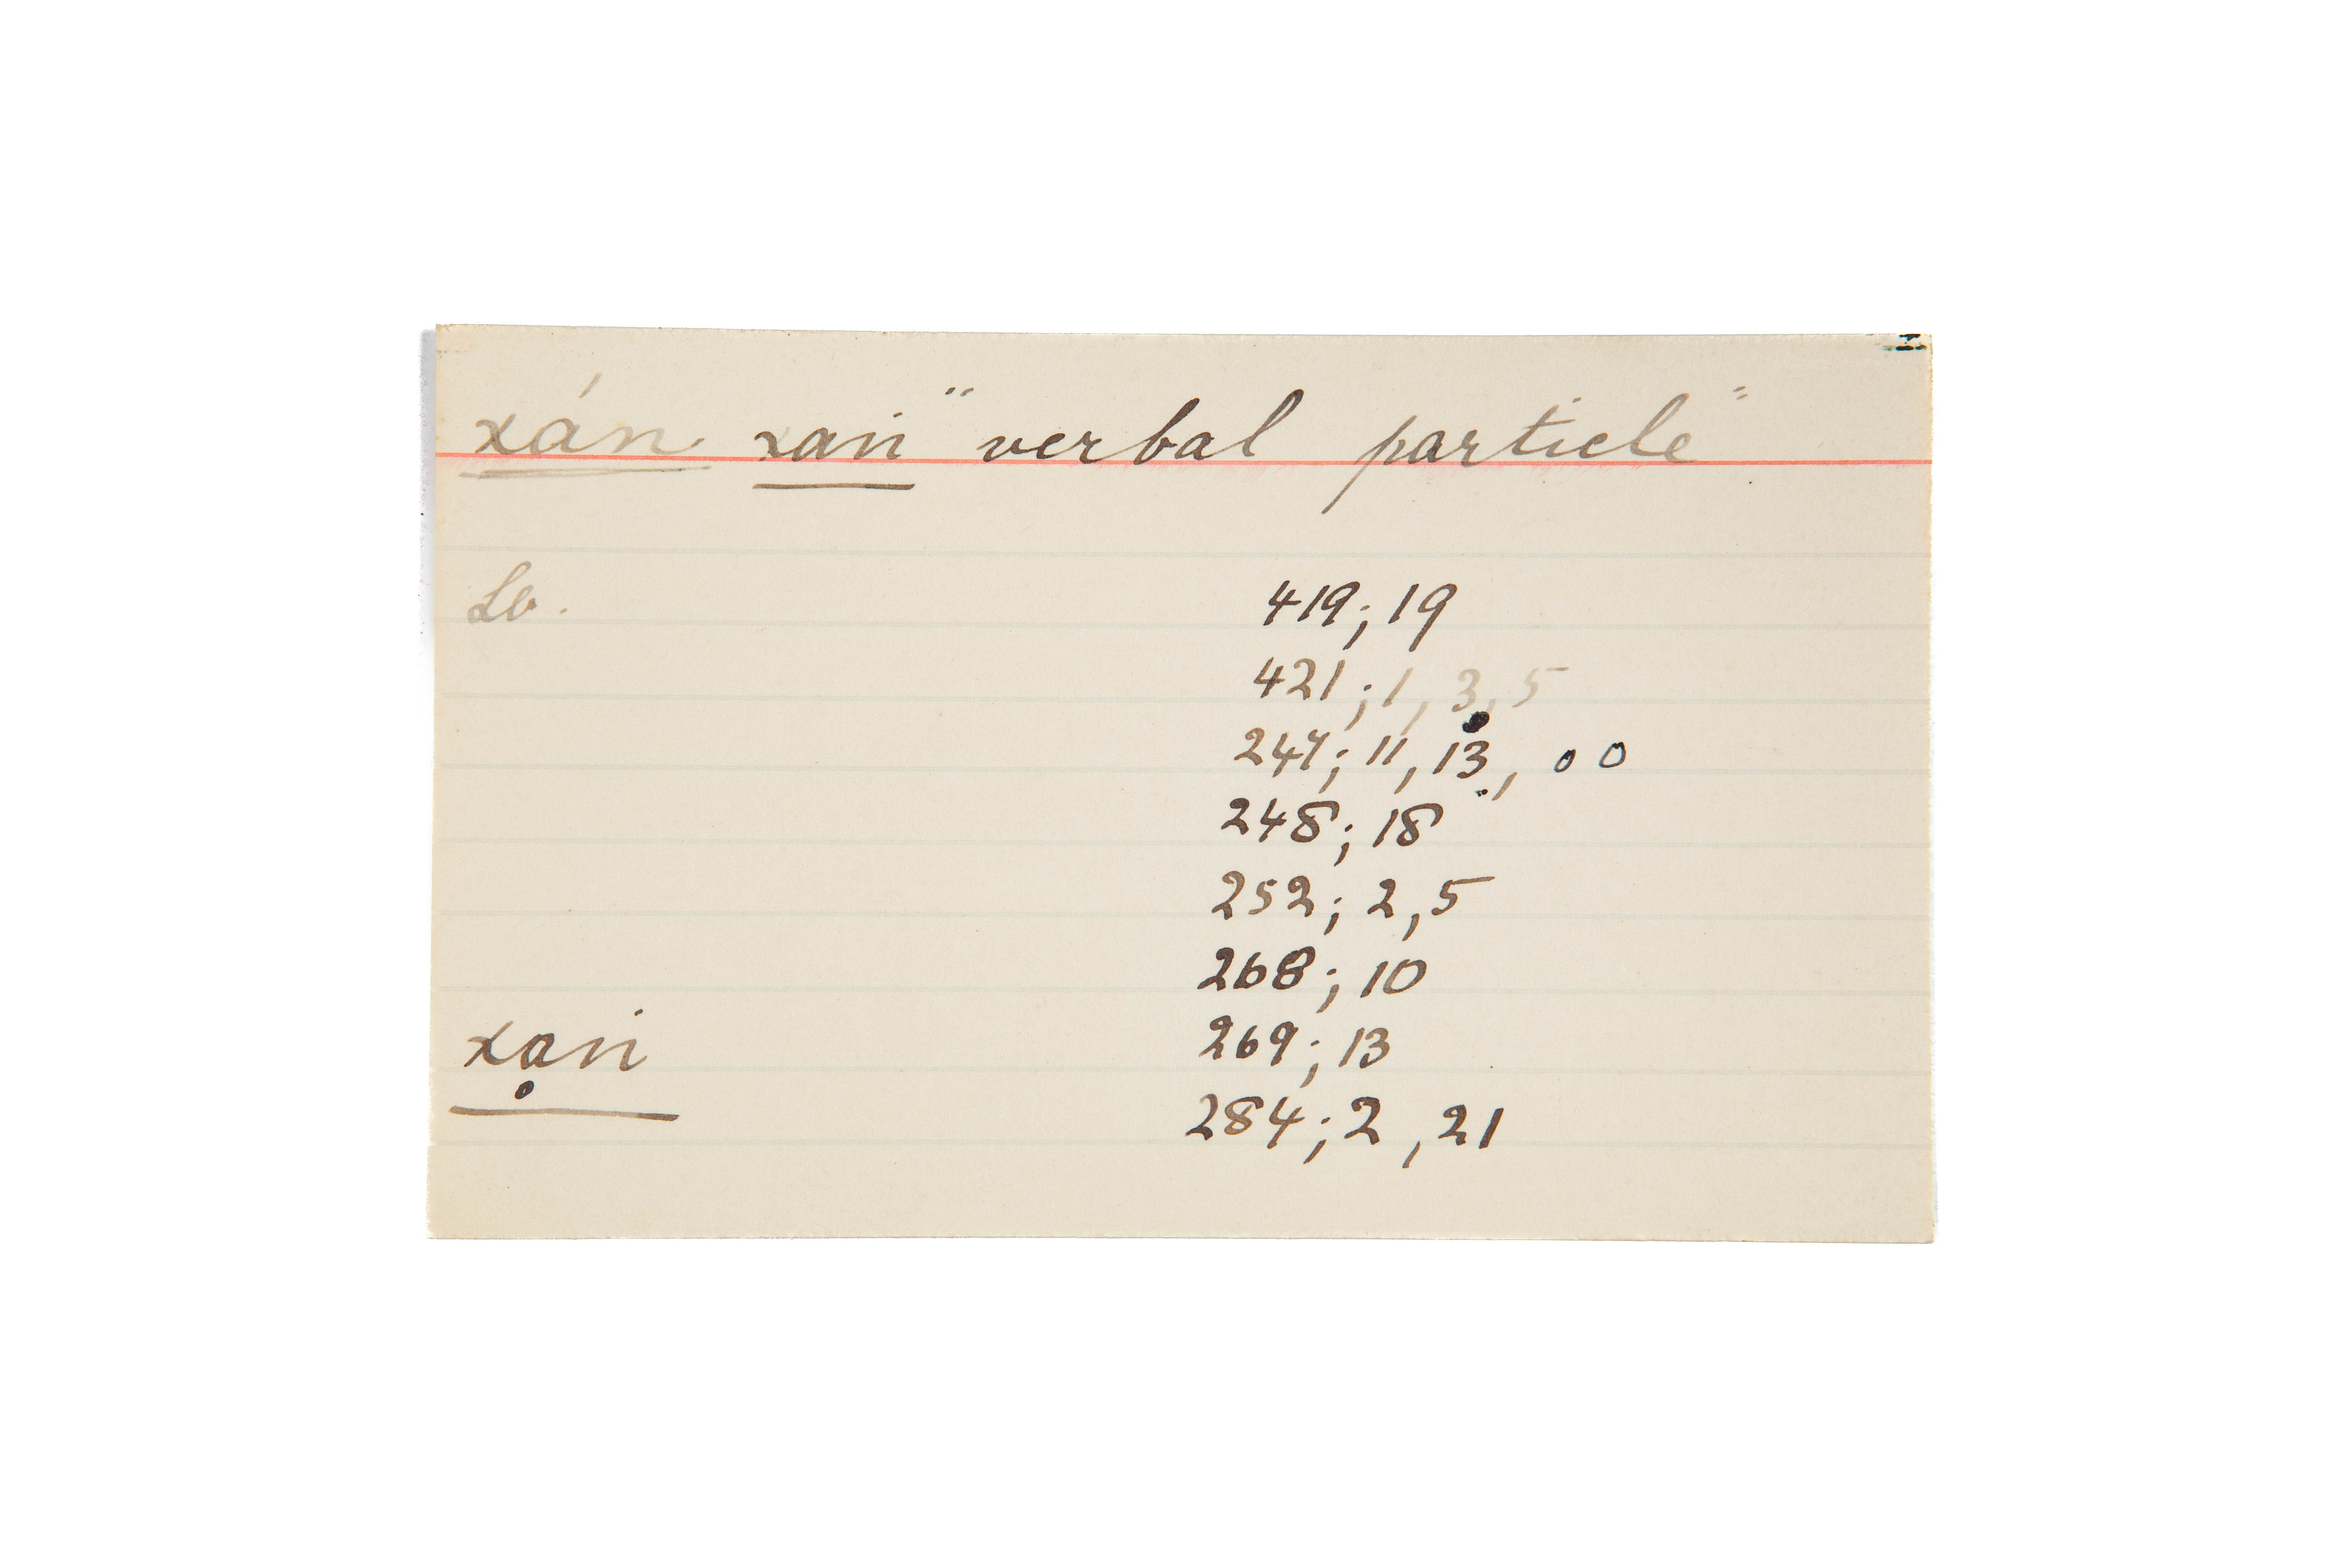 xán xań "verbal particle"
Lb. 419; 19
421; 1, 3, 5
247; 11, 13, 00
248; 18
252; 2, 5
268; 10
xąń 269; 13
284; 2, 21